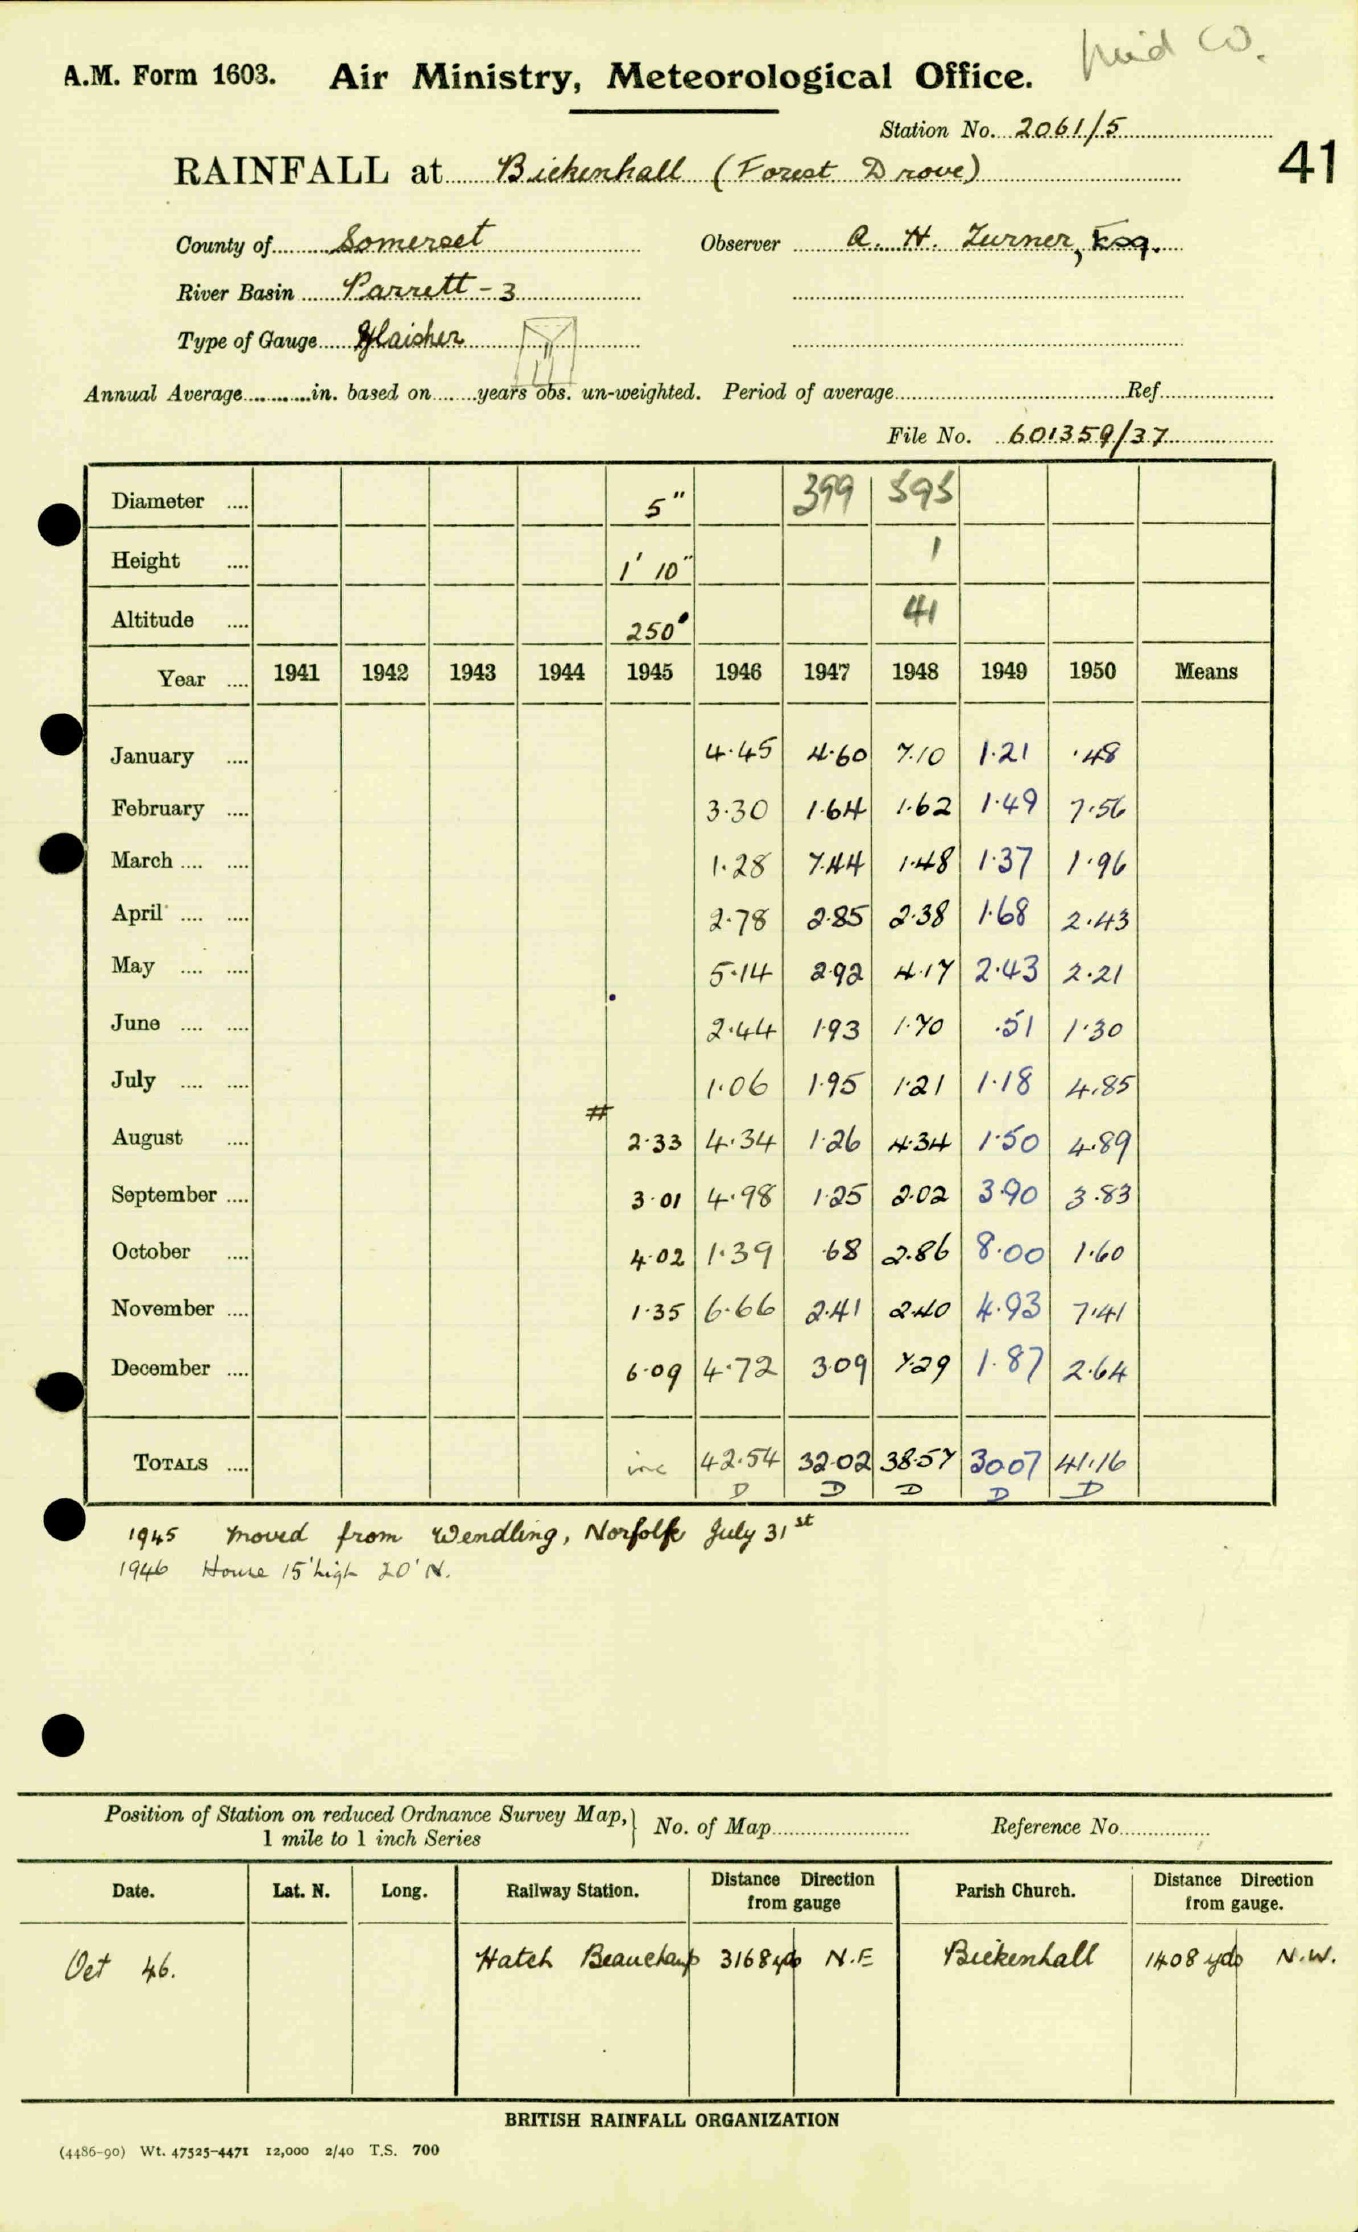 mid co.
A.M. Form 1603. Air Ministry, Meteorological Office.
Station No. 2061/5
41
RAINFALL at Bickenhall (Forest Drove)
County of Somerset Observer A. H. Turner, Esq.
River Basin Parrett - 3
Type of Gauge Glaisher
Annual Average in. based on years obs. un-weighted. Period of average Ref
File No. 601359/37
Diameter .... 5" 399 595
Height .... 1' 10" 1
Altitude .... 250' 41
Year .... 1941 1942 1943 1944 1945 1946 1947 1948 1949 1950 Means
January .... 4.45 4.60 7.10 1.21 .48
February .... 3.30 1.64 1.62 1.49 7.56
March .... .... 1.28 7.44 1.48 1.37 1.96
April .... .... 2.78 2.85 2.38 1.68 2.43
May .... .... 5.14 2.92 4.17 2.43 2.21
June .... .... 2.44 1.93 1.70 .51 1.30
July .... .... 1.06 1.95 1.21 1.18 4.85
#
August .... 2.33 4.34 1.26 4.34 1.50 4.89
September .... 3.01 4.98 1.25 2.02 3.90 3.83
October .... 4.02 1.39 .68 2.86 8.00 1.60
November .... 1.35 6.66 2.41 2.40 4.93 7.41
December .... 6.09 4.72 3.09 7.29 1.87 2.64
TOTALS .... inc 42.54 32.02 38.57 30.07 41.16
D D D D D
1945 Moved from Wendling, Norfolk July 31st
1946 House 15' high 20' N.
Position of Station on reduced Ordnance Survey Map, } No. of Map Reference No.
1 mile to 1 inch Series
Date. Lat. N. Long. Railway Station. Distance Direction from gauge Parish Church. Distance Direction from gauge.
Oct 46. Hatch Beauchamp 3168 yds N.E Bickenhall 1408 yds N.W.
BRITISH RAINFALL ORGANIZATION
(4486-90) Wt. 47525-4471 12,000 2/40 T.S. 700